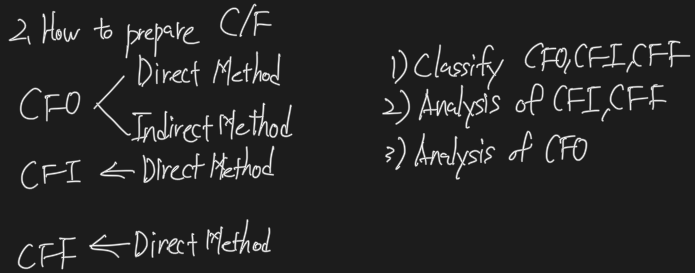 2. How to prepare C/F
Direct Method
CFO
Indirect Method
CFI ← Direct Method
CFF ← Direct Method
1) Classify CFO, CFI, CFF
2) Analysis of CFI, CFF
3) Analysis of CFO